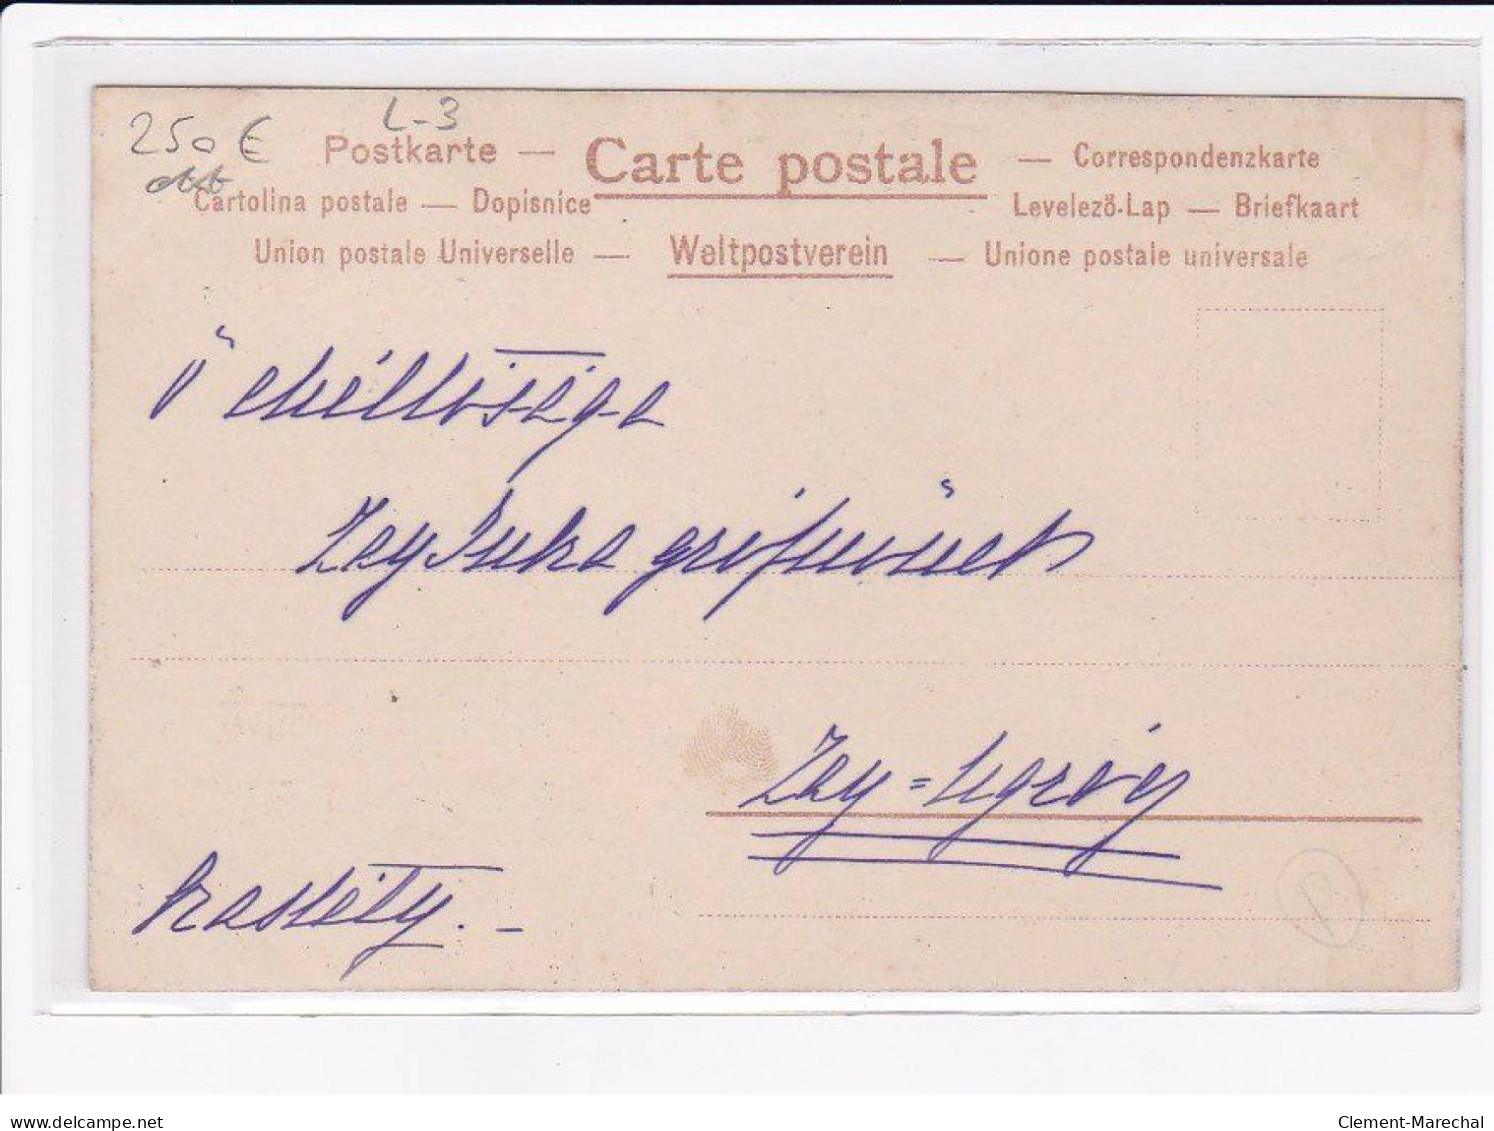 250 € L-3
Postkarte — Carte postale — Correspondenzkarte
Cartolina postale — Dopisnice Levelező-Lap — Briefkaart
Union postale Universelle — Weltpostverein — Unione postale universale
Ő
Zay grófnőnek
Zay=Ugrócz
kastély.-
delcampe.net
Clement-Marechal